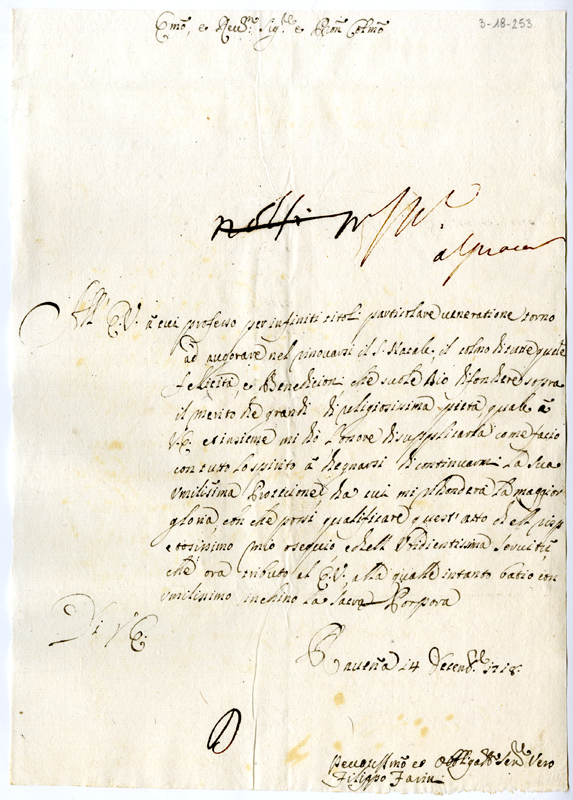 3-18-253
Emo, e Reu.mo Sig.re e Pron Colmo
All' E.V. à cui professo per infiniti titoli particolare ueneratione torno
ad augurare nel rinouarsi il S. Natale, il colmo di tutte quelle
felicità, e Benedicion che suole Dio difondere sopra
il merito de grandi di religiosisima pietà quale è
V.E. et insieme mi dò l'onore di supplicarla come facio
con tutto lo spirito à degnarsi di continuarmi la Sua
Vmilisima Protecione da cui mi risonderà la maggior
gloria, con che possi qualificare quest'atto del rispe
etosisimo mio osequio e dell' Vbidientissima Seruitù,
che ora tributo al E.V. alla qualle intanto batio con
vmilisimo inchino la Sacra Porpora
Di V.E.
Rauena 14 Decemb.re 1718.
Deuotissmo et Obbligatmo Ser.re Vero
Filippo Farin